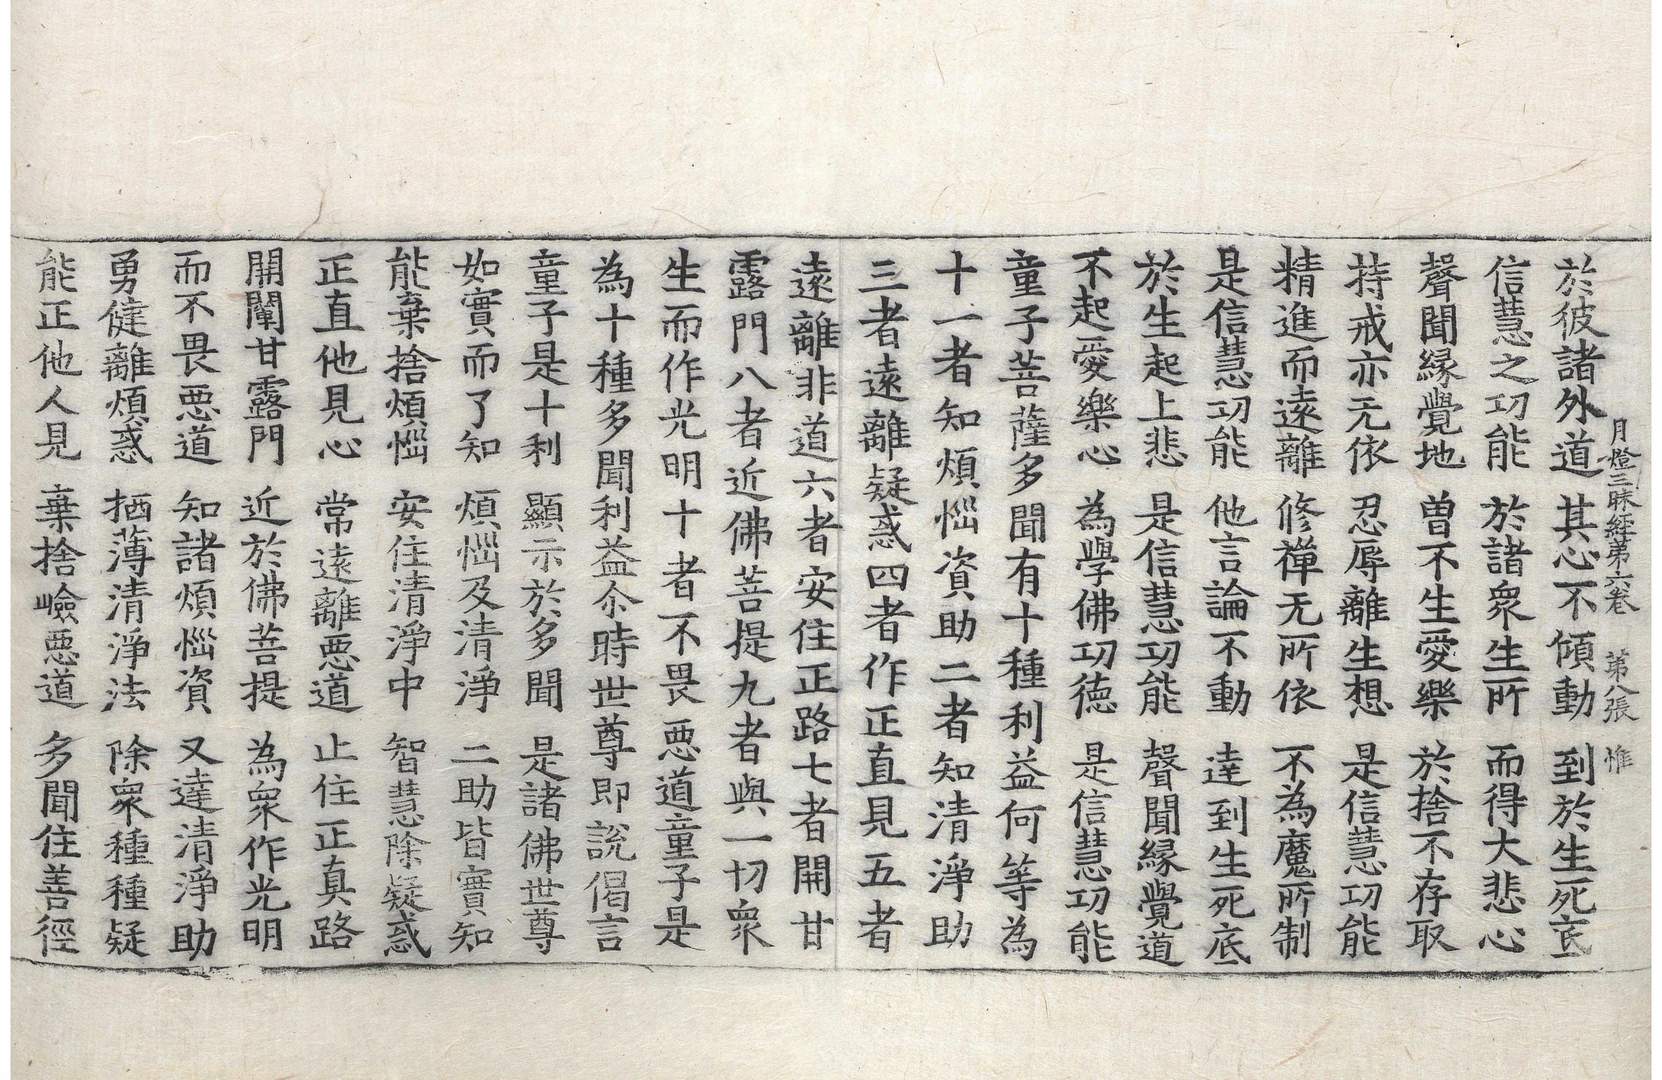 月燈三昧經第六卷 第八張 惟
於彼諸外道 其心不傾動 到於生死底
信慧之功能 於諸衆生所 而得大悲心
聲聞緣覺地 曾不生愛樂 於捨不存取
持戒亦无依 忍辱離生想 是信慧功能
精進而遠離 修禪无所依 不為魔所制
是信慧功能 他言論不動 達到生死底
於生起上悲 是信慧功能 聲聞緣覺道
不起愛樂心 為學佛功德 是信慧功能
童子菩薩多聞有十種利益何等為
十一者知煩惱資助二者知清淨助
三者遠離疑惑四者作正直見五者
遠離非道六者安住正路七者開甘
露門八者近佛菩提九者與一切衆
生而作光明十者不畏惡道童子是
為十種多聞利益尒時世尊即說偈言
童子是十利 顯示於多聞 是諸佛世尊
如實而了知 煩惱及清淨 二助皆實知
能棄捨煩惱 安住清淨中 智慧除疑惑
正直他見心 常遠離惡道 止住正真路
開闡甘露門 近於佛菩提 為衆作光明
而不畏惡道 知諸煩惱資 又達清淨助
勇健離煩惑 栖薄清淨法 除衆種種疑
能正他人見 棄捨嶮惡道 多聞住善徑